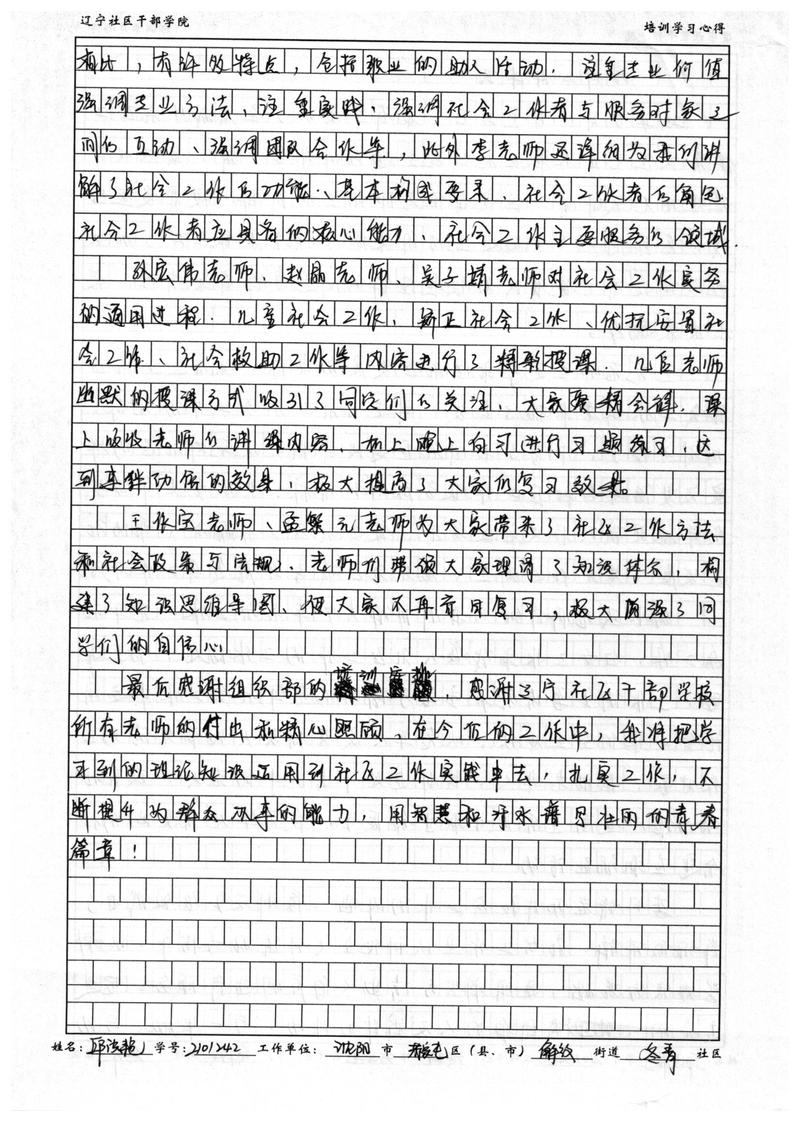 辽宁社区干部学院
培训学习心得
有比，有许效特点，包括职业的助人活动．注重专业价值
强调专业方法，注重实践，强调社会工作者与服务对象之
间的互动、强调团队合作等，此外李老师还详细为我们讲
解了社会工作的功能、基本构成要素、社会工作者的角色
社会工作者应具备的核心能力、社会工作主要服务的领域．
孙宏伟老师、赵晶老师、吴子靖老师对社会工作实务
的通用过程．儿童社会工作、矫正社会工作、优抚安置社
会工作、社会救助工作等内容进行了精彩授课．几位老师
幽默的授课方式吸引了同学们的关注．大家聚精会神．课
上吸收老师的讲课内容、加上晚上自习进行习题练习，达
到事半功倍的效果，极大提高了大家的复习效果。
王作宝老师、孟繁元老师为大家带来了社区工作方法
和社会政策与法规、老师们带领大家理清了知识体系、构
建了知识思维导图、使大家不再盲目复习，极大增强了同
学们的自信心
最后感谢组织部的培训安排 感谢辽宁社区干部学校
所有老师的付出和精心照顾，在今后的工作中，我将把学
习到的理论知识运用到社区工作实践中去，扎实工作，不
断提升为群众办事的能力，用智慧和汗水谱写壮丽的青春
篇章！
姓名： 学号：2101242 工作单位：沈阳 市 区（县、市） 街道 冬青 社区